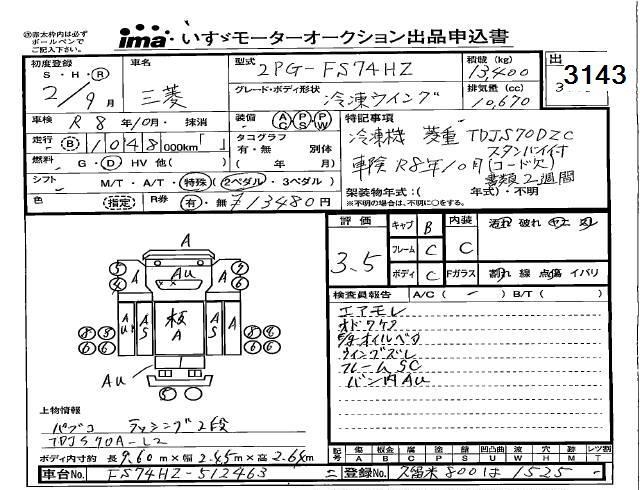 ㊟赤太枠内は必ず
ボールペンで
ご記入下さい。
ima いすゞモーターオークション出品申込書
初度登録 S・H・Ⓡ 2/9月
車名 三菱
型式 2PG-FS74HZ
グレード・ボディ形状 冷凍ウイング
積載 (kg) 13,400
排気量 (cc) 10,670
出 3143
車検 R8年10月・抹消
装備 AC PS PW
走行 Ⓑ 1048 000km「 」
タコグラフ 有・無 別体 ( 年 月)
燃料 G・Ⓓ HV 他( )
シフト M/T・A/T・特殊(2ペダル・3ペダル)
色 (指定) R券 有・無 ¥13480円
特記事項
冷凍機 菱重 TDJS70DZC
スタンバイ付
(コード欠)
車険 R8年10月
書類2週間
架装物年式:( 年式)・不明
※不明の場合は、不明に○をする。
評価 3.5
キャブ B
フレーム C
ボディ C
内装 C
Fガラス
汚れ 破れ ヤニ スレ
割れ 線 点傷 イバリ
検査員報告 A/C ( - ) B/T ( )
エアモレ
オドワケア
ウイングズレ
フレームSC
バン内Au
A
Au
板
A
AS
上物情報
パブコ ラッシング2段
TDJS70A-L2
ボディ内寸約 長9.60m×幅2.45m×高2.64m
車台No. FS74HZ-512463
記号 傷A 板金B 腐C 塗P 錆S 凹凸曲U 波W 穴H 跡M レツ割T
登録No. 久留米800は1525